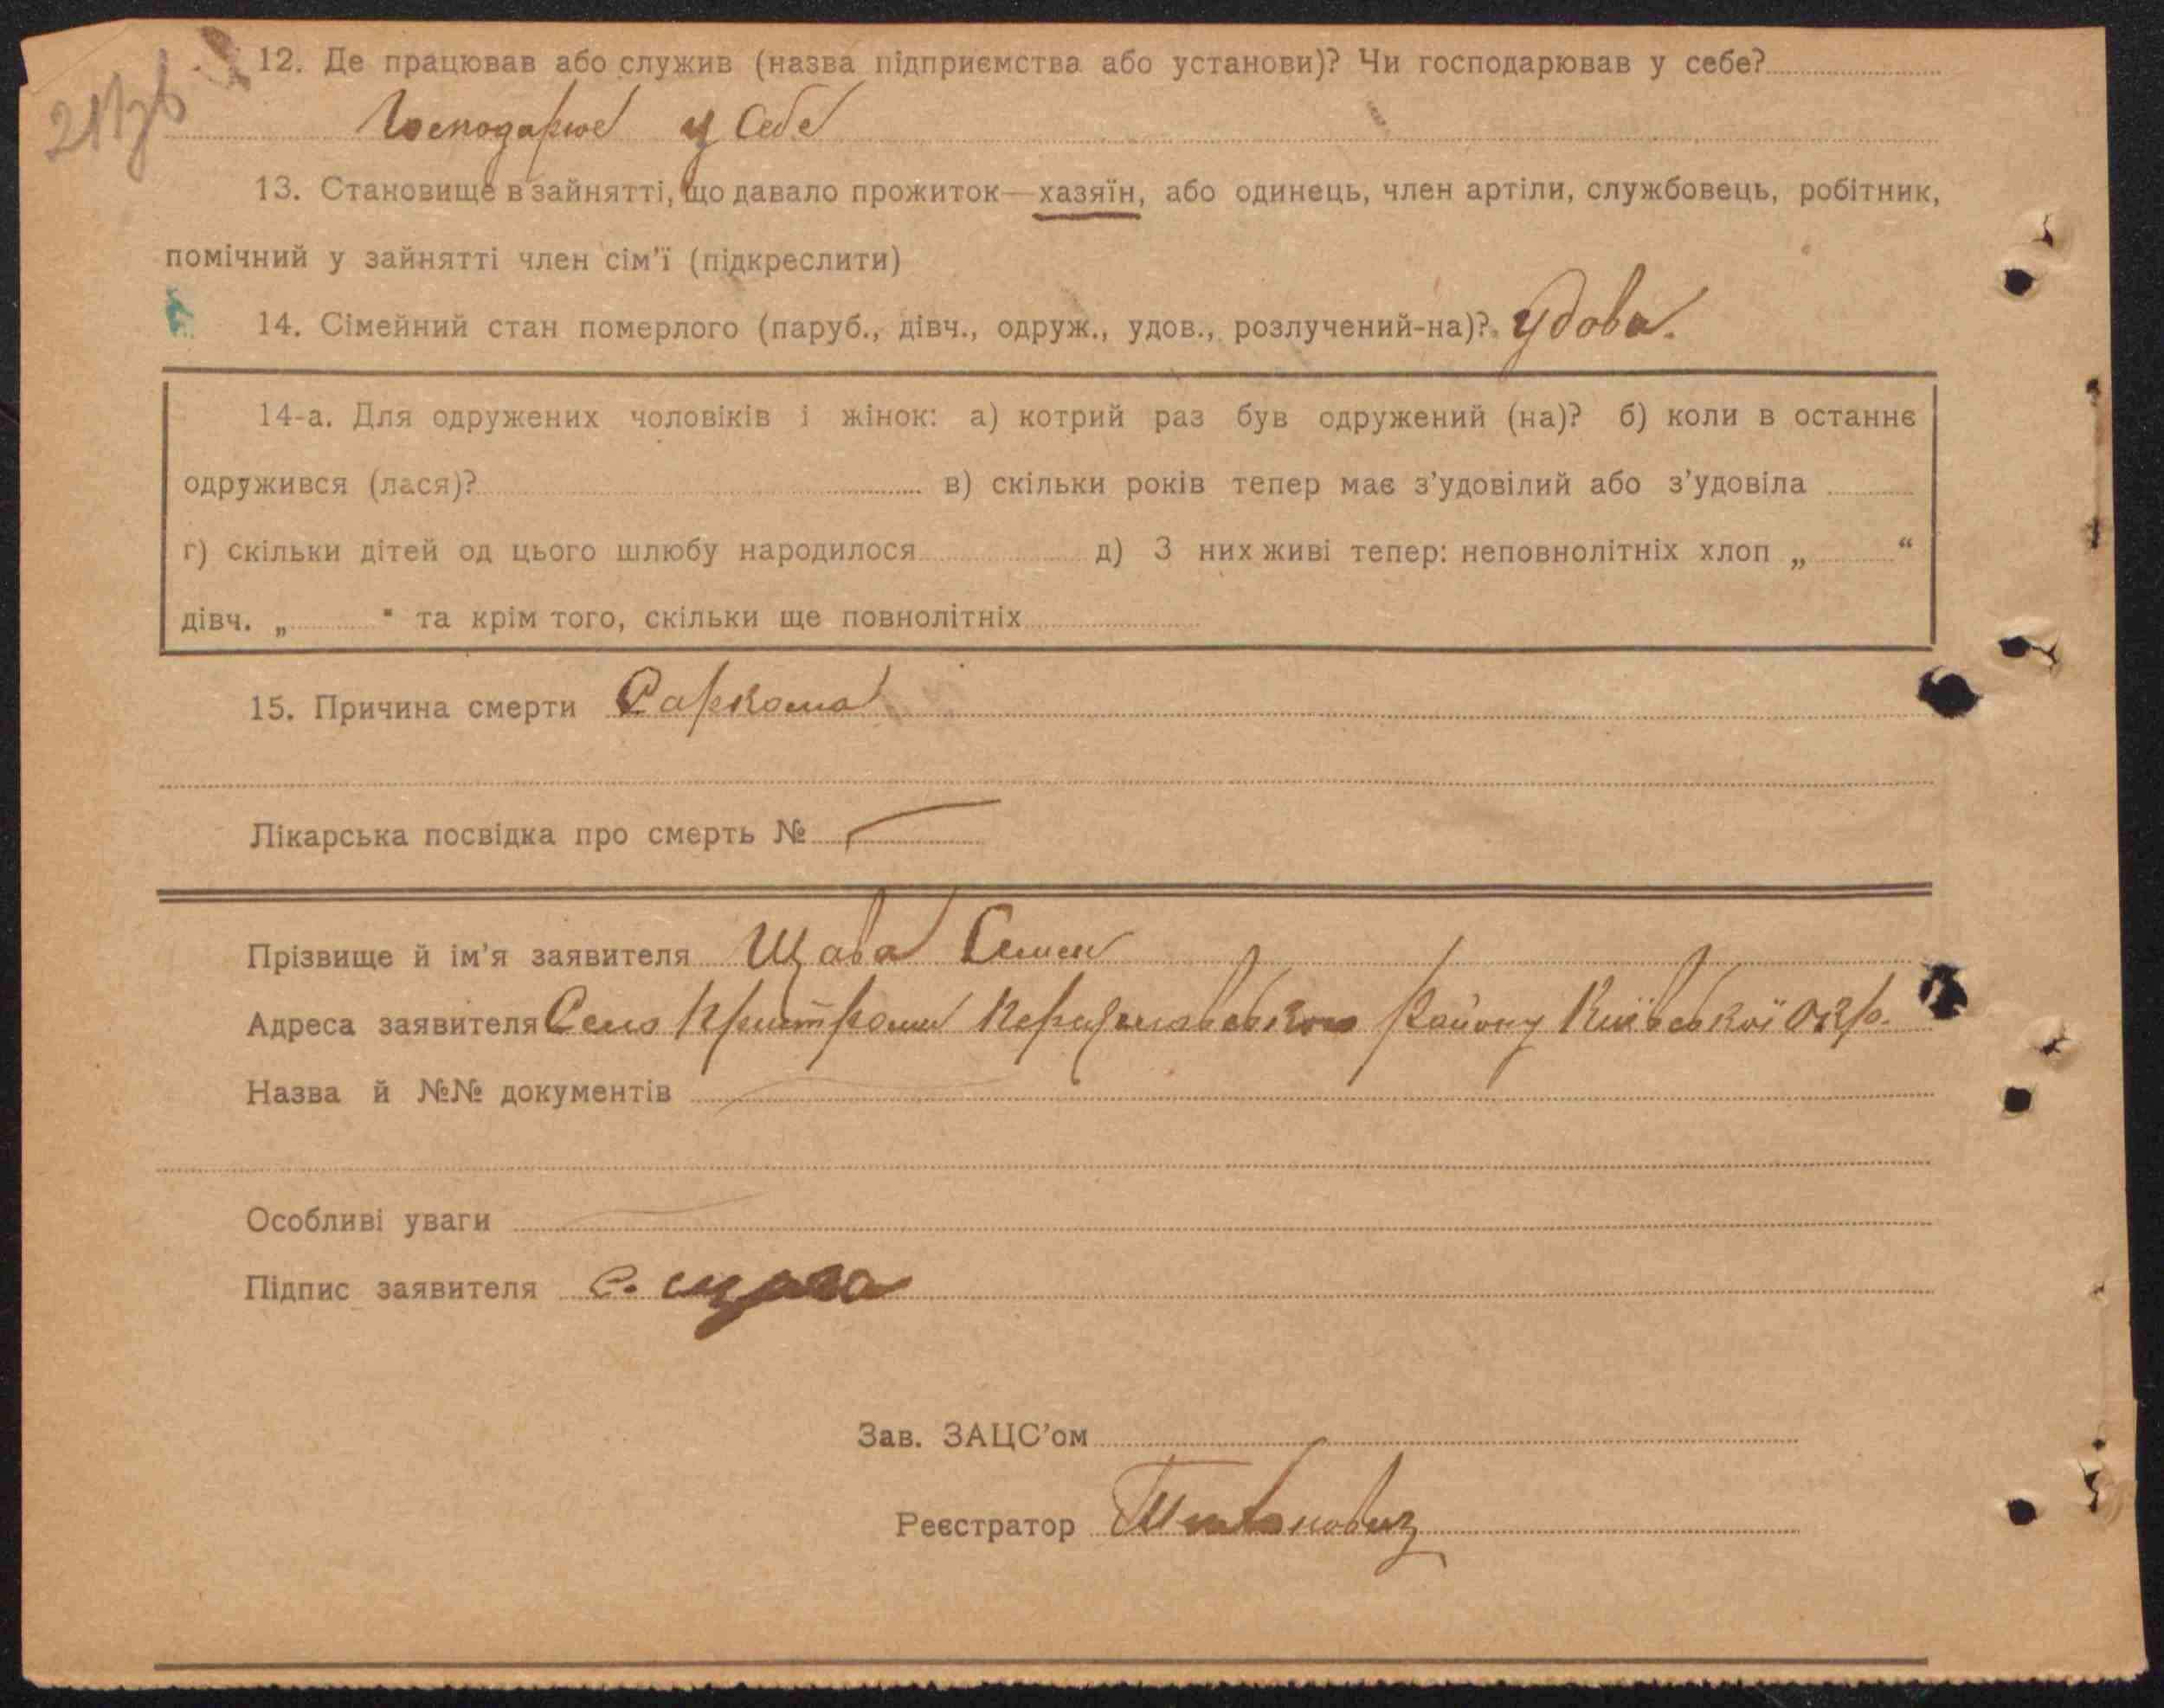 12. Де працював або служив (назва підприємства або установи)? Чи господарював у себе?
Господарює у себе
13. Становище в зайнятті, що давало прожиток—хазяїн, або одинець, член артіли, службовець, робітник,
помічний у зайнятті член сім'ї (підкреслити)
14. Сімейний стан померлого (паруб., дівч., одруж., удов., розлучений-на)? удова.
14-а. Для одружених чоловіків і жінок: а) котрий раз був одружений (на)? б) коли в останнє
одружився (лася)? в) скільки років тепер має з'удовілий або з'удовіла
г) скільки дітей од цього шлюбу народилося д) З них живі тепер: неповнолітніх хлоп „ “
дівч. „ “ та крім того, скільки ще повнолітніх
15. Причина смерти Саркома
Лікарська посвідка про смерть №
Прізвище й ім'я заявителя Щава Семен
Адреса заявителя Село району Київської Окр.
Назва й №№ документів
Особливі уваги
Підпис заявителя С. Щава
Зав. ЗАЦС'ом
Реєстратор